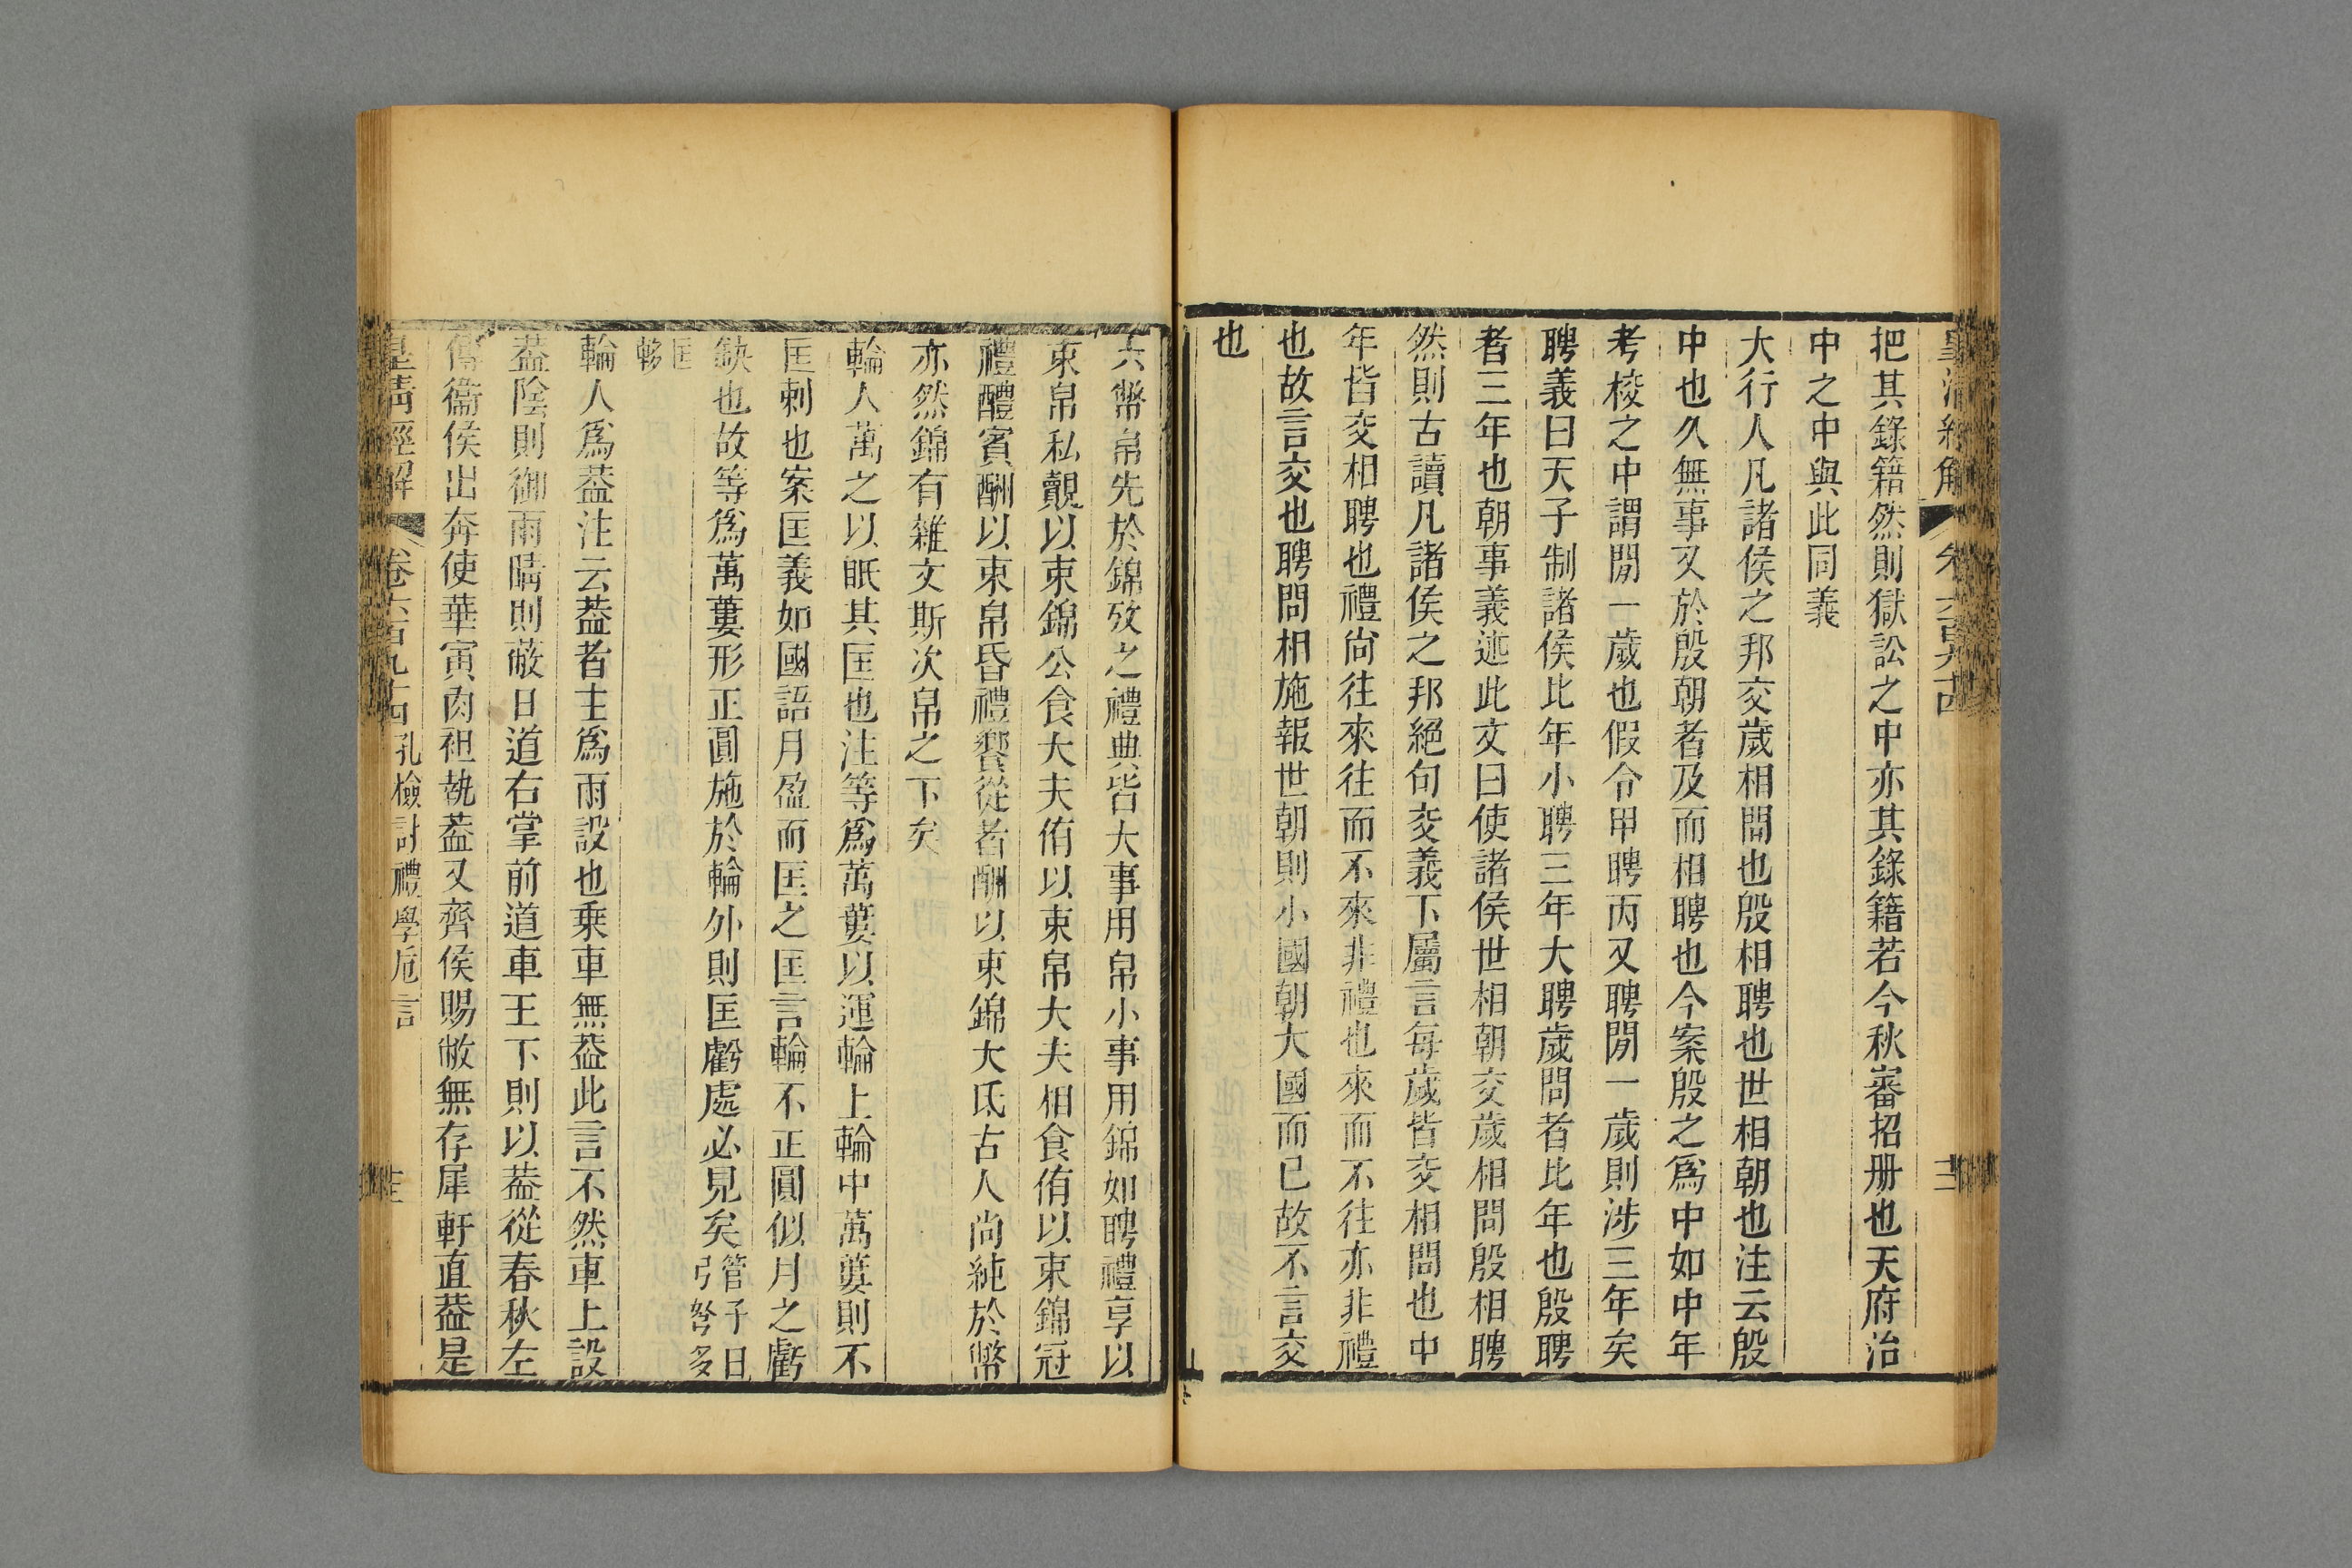 把其錄籍然則獄訟之中亦其錄籍若今秋審招册也天府治
中之中與此同義
大行人凡諸侯之邦交歲相問也殷相聘也世相朝也注云殷
中也久無事又於殷朝者及而相聘也今案殷之爲中如中年
考校之中謂閒一歲也假令甲聘丙又聘閒一歲則涉三年矣
聘義曰天子制諸侯比年小聘三年大聘歲問者比年也殷聘
者三年也朝事義述此文曰使諸侯世相朝交歲相問殷相聘
然則古讀凡諸侯之邦絕句交義下屬言每歲皆交相問也中
年皆交相聘也禮尙往來往而不來非禮也來而不往亦非禮
也故言交也聘問相施報世朝則小國朝大國而已故不言交
也
六幣帛先於錦攷之禮典皆大事用帛小事用錦如聘禮享以
束帛私覿以束錦公食大夫侑以束帛大夫相食侑以束錦冠
禮醴賓酬以束帛昏禮饗從者酬以束錦大氐古人尚純於幣
亦然錦有雜文斯次帛之下矣
輪人萬之以眡其匡也注等爲萬蔞以運輪上輪中萬蔞則不
匡刺也案匡義如國語月盈而匡之匡言輪不正圓似月之虧
缺也故等爲萬蔞形正圓施於輪外則匡虧處必見矣管子曰弓弩多
匡𨋩
輪人爲葢注云葢者主爲雨設也乘車無葢此言不然車上設
葢陰則御雨晴則蔽日道右掌前道車王下則以葢從春秋左
傳衞侯出奔使華寅肉袒執葢又齊侯賜敝無存犀軒直葢是
皇清經解 卷六百九十四 孔檢討禮學卮言